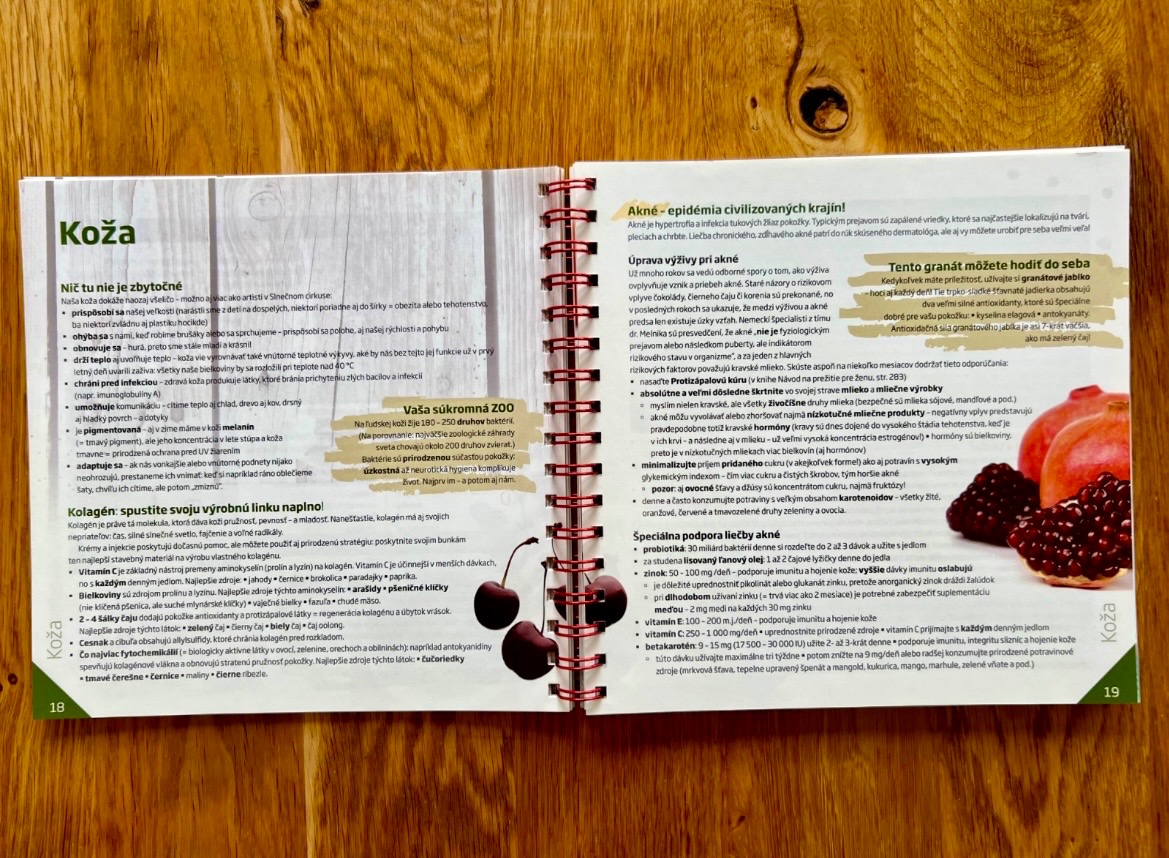 Koža
Nič tu nie je zbytočné
Naša koža dokáže naozaj všeličo – možno aj viac ako artisti v Slnečnom cirkuse:
• prispôsobí sa našej veľkosti (narástli sme z detí na dospelých, niektorí poriadne aj do šírky = obezita alebo tehotenstvo,
ba niektorí zvládnu aj plastiku hocikde)
• ohýba sa s nami, keď robíme brušáky alebo sa sprchujeme – prispôsobí sa polohe, aj našej rýchlosti a pohybu
• obnovuje sa – hurá, preto sme stále mladí a krásni!
• drží teplo aj uvoľňuje teplo – koža vie vyrovnávať také vnútorné teplotné výkyvy, aké by nás bez tejto jej funkcie už v prvý
letný deň uvarili zaživa: všetky naše bielkoviny by sa rozložili pri teplote nad 40 °C
• chráni pred infekciou – zdravá koža produkuje látky, ktoré bránia prichyteniu zlých bacilov a infekcií
(napr. imunoglobulíny A)
• umožňuje komunikáciu – cítime teplo aj chlad, drevo aj kov, drsný
aj hladký povrch – a dotyky
• je pigmentovaná – aj v zime máme v koži melanín
(= tmavý pigment), ale jeho koncentrácia v lete stúpa a koža
tmavne = prirodzená ochrana pred UV žiarením
• adaptuje sa – ak nás vonkajšie alebo vnútorné podnety nijako
neohrozujú, prestaneme ich vnímať: keď si napríklad ráno oblečieme
šaty, chvíľu ich cítime, ale potom „zmiznú“.
Vaša súkromná ZOO
Na ľudskej koži žije 180 – 250 druhov baktérií.
(Na porovnanie: najväčšie zoologické záhrady
sveta chovajú okolo 200 druhov zvierat.)
Baktérie sú prirodzenou súčasťou pokožky:
úzkostná až neurotická hygiena komplikuje
život. Najprv im – a potom aj nám.
Kolagén: spustite svoju výrobnú linku naplno!
Kolagén je práve tá molekula, ktorá dáva koži pružnosť, pevnosť – a mladosť. Nanešťastie, kolagén má aj svojich
nepriateľov: čas, silné slnečné svetlo, fajčenie a voľné radikály.
Krémy a injekcie poskytujú dočasnú pomoc, ale môžete použiť aj prirodzenú stratégiu: poskytnite svojim bunkám
ten najlepší stavebný materiál na výrobu vlastného kolagénu.
• Vitamín C je základný nástroj premeny aminokyselín (prolín a lyzín) na kolagén. Vitamín C je účinnejší v menších dávkach,
no s každým denným jedlom. Najlepšie zdroje: • jahody • černice • brokolica • paradajky • paprika.
• Bielkoviny sú zdrojom prolínu a lyzínu. Najlepšie zdroje týchto aminokyselín: • arašidy • pšeničné klíčky
(nie klíčená pšenica, ale suché mlynárské klíčky) • vaječné bielky • fazuľa • chudé mäso.
• 2 – 4 šálky čaju dodajú pokožke antioxidanty a protizápalové látky = regenerácia kolagénu a úbytok vrások.
Najlepšie zdroje týchto látok: • zelený čaj • čierny čaj • biely čaj • čaj oolong.
• Cesnak a cibuľa obsahujú allylsulfidy, ktoré chránia kolagén pred rozkladom.
• Čo najviac fytochemikálií (= biologicky aktívne látky v ovocí, zelenine, orechoch a obilninách): napríklad antokyanidíny
spevňujú kolagénové vlákna a obnovujú stratenú pružnosť pokožky. Najlepšie zdroje týchto látok: • čučoriedky
• tmavé čerešne • černice • maliny • čierne ríbezle.
Koža
18
Akné – epidémia civilizovaných krajín!
Akné je hypertrofia a infekcia tukových žliaz pokožky. Typickým prejavom sú zapálené vriedky, ktoré sa najčastejšie lokalizujú na tvári,
pleciach a chrbte. Liečba chronického, zdĺhavého akné patrí do rúk skúseného dermatológa, ale aj vy môžete urobiť pre seba veľmi veľa!
Úprava výživy pri akné
Už mnoho rokov sa vedú odborné spory o tom, ako výživa
ovplyvňuje vznik a priebeh akné. Staré názory o rizikovom
vplyve čokolády, čierneho čaju či korenia sú prekonané, no
v posledných rokoch sa ukazuje, že medzi výživou a akné
predsa len existuje úzky vzťah. Nemeckí špecialisti z tímu
dr. Melnika sú presvedčení, že akné „nie je fyziologickým
prejavom alebo následkom puberty, ale indikátorom
rizikového stavu v organizme“, a za jeden z hlavných
rizikových faktorov považujú kravské mlieko. Skúste aspoň na niekoľko mesiacov dodržať tieto odporúčania:
• nasaďte Protizápalovú kúru (v knihe Návod na prežitie pre ženu, str. 283)
• absolútne a veľmi dôsledne škrtnite vo svojej strave mlieko a mliečne výrobky
▫ myslím nielen kravské, ale všetky živočíšne druhy mlieka (bezpečné sú mlieka sójové, mandľové a pod.)
▫ akné môžu vyvolávať alebo zhoršovať najmä nízkotučné mliečne produkty – negatívny vplyv predstavujú
pravdepodobne totiž kravské hormóny (kravy sú dnes dojené do vysokého štádia tehotenstva, keď je
v ich krvi – a následne aj v mlieku – už veľmi vysoká koncentrácia estrogénov!) • hormóny sú bielkoviny,
preto je v nízkotučných mliekach viac bielkovín (aj hormónov)
• minimalizujte príjem pridaného cukru (v akejkoľvek forme) ako aj potravín s vysokým
glykemickým indexom – čím viac cukru a čistých škrobov, tým horšie akné
▫ pozor: aj ovocné šťavy a džúsy sú koncentrátom cukru, najmä fruktózy!
• denne a často konzumujte potraviny s veľkým obsahom karotenoidov – všetky žlté,
oranžové, červené a tmavozelené druhy zeleniny a ovocia.
Tento granát môžete hodiť do seba
Kedykoľvek máte príležitosť, užívajte si granátové jablko
– hoci aj každý deň! Tie trpko-sladké šťavnaté jadierka obsahujú
dva veľmi silné antioxidanty, ktoré sú špeciálne
dobré pre vašu pokožku: • kyselina elagová • antokyanáty.
Antioxidačná sila granátového jablka je asi 7-krát väčšia,
ako má zelený čaj!
Špeciálna podpora liečby akné
• probiotiká: 30 miliárd baktérií denne si rozdeľte do 2 až 3 dávok a užite s jedlom
• za studena lisovaný ľanový olej: 1 až 2 čajové lyžičky denne do jedla
• zinok: 50 – 100 mg/deň – podporuje imunitu a hojenie kože; vyššie dávky imunitu oslabujú
▫ je dôležité uprednostniť pikolinát alebo glukanát zinku, pretože anorganický zinok dráždi žalúdok
▫ pri dlhodobom užívaní zinku (= trvá viac ako 2 mesiace) je potrebné zabezpečiť suplementáciu
meďou – 2 mg medi na každých 30 mg zinku
• vitamín E: 100 – 200 m.j./deň – podporuje imunitu a hojenie kože
• vitamín C: 250 – 1 000 mg/deň • uprednostnite prirodzené zdroje • vitamín C prijímajte s každým denným jedlom
• betakarotén: 9 – 15 mg (17 500 – 30 000 IU) užite 2- až 3-krát denne • podporuje imunitu, integritu slizníc a hojenie kože
▫ túto dávku užívajte maximálne tri týždne • potom znížte na 9 mg/deň alebo radšej konzumujte prirodzené potravinové
zdroje (mrkvová šťava, tepelne upravený špenát a mangold, kukurica, mango, marhule, zelené vňate a pod.)
Koža
19